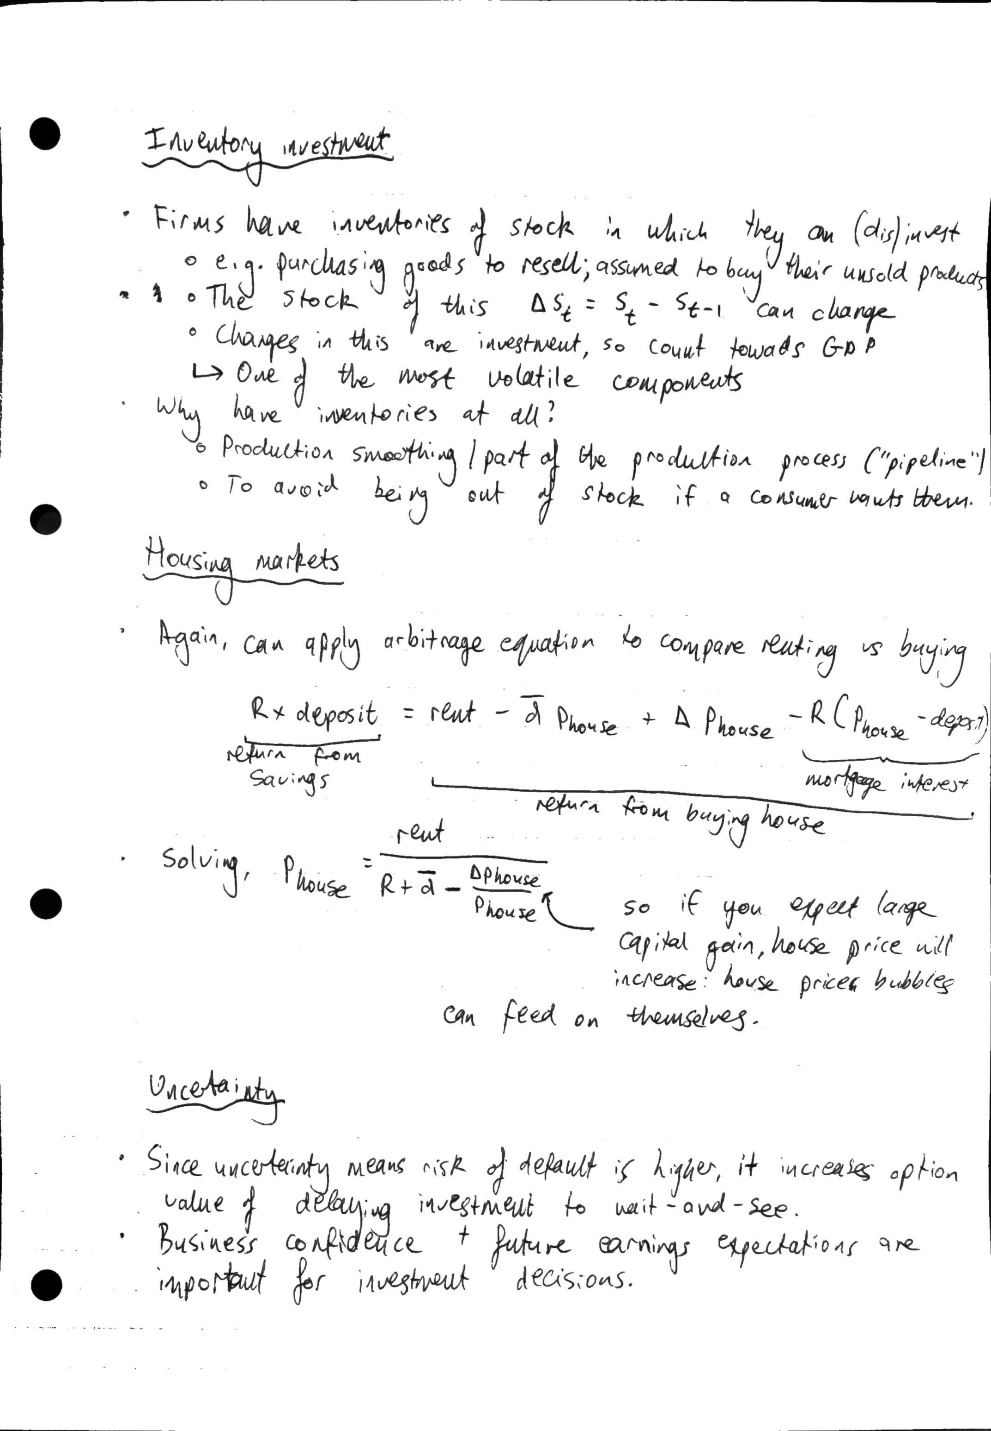 Inventory investment
· Firms have inventories of stock in which they can (dis)invest
o e.g. purchasing goods to resell; assumed to buy their unsold products
o The stock of this ΔS_t = S_t - S_{t-1} can change
o Changes in this are investment, so count towards GDP
↳ One of the most volatile components
· Why have inventories at all?
o Production smoothing / part of the production process ("pipeline")
o To avoid being out of stock if a consumer wants them.
Housing markets
· Again, can apply arbitrage equation to compare renting vs buying
R x deposit = rent - d̄ P_house + Δ P_house - R(P_house - deposit)
return from savings
mortgage interest
return from buying house
· Solving, P_house = rent / (R + d̄ - ΔP_house / P_house)
so if you expect large
capital gain, house price will
increase: house prices bubbles
can feed on themselves.
Uncertainty
· Since uncertainty means risk of default is higher, it increases option
value of delaying investment to wait-and-see.
· Business confidence + future earnings expectations are
important for investment decisions.